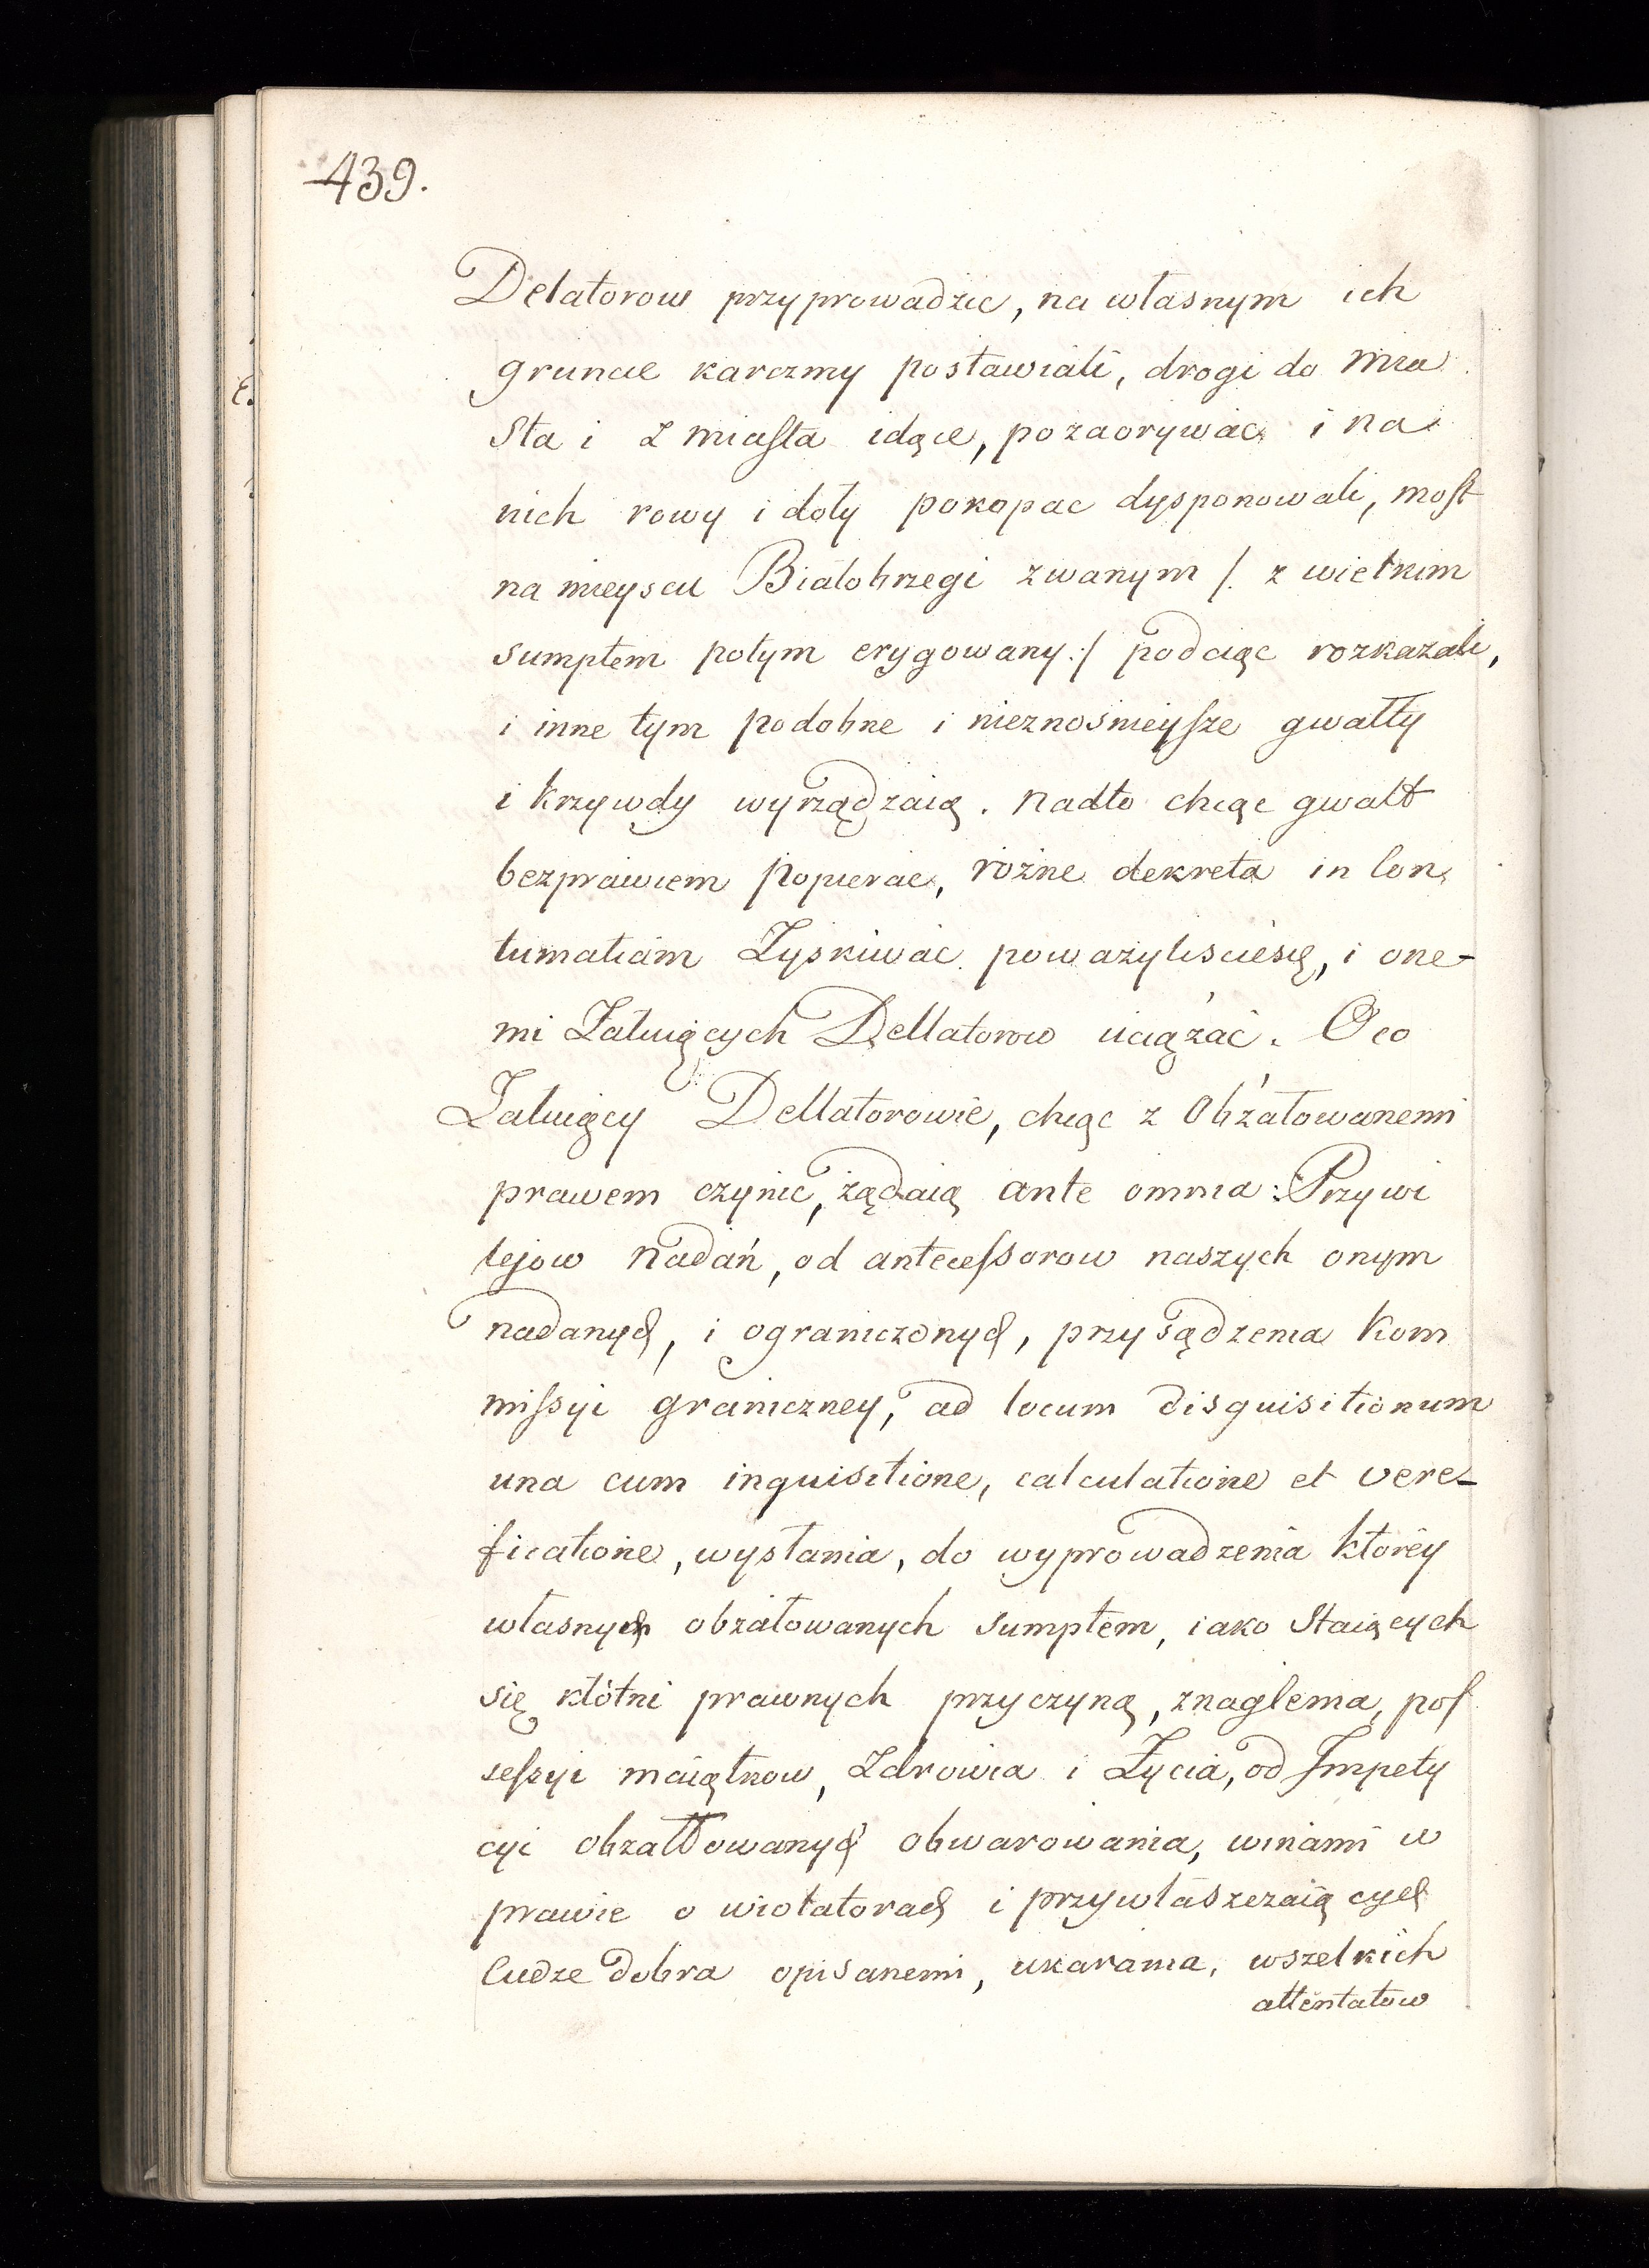 439.
Delatorow przyprowadzic, na własnym ich
gruncie karczmy postawiali, drogi do Mia
sta i z miasta idące, pozaorywac i na
nich rowy i doły pokopac dysponowali, most
na mieyscu Białobrzegi zwanym /. z wielkim
sumptem potym erygowany ./ podciąc rozkazali,
i inne tym podobne i nieznosnieysze gwałty
i krzywdy wyrządzaią. Nadto chcąc gwałt
bezprawiem popierac, rożne dekreta in Con
tumatiam Zyskiwac poważyliscie się, i one-
mi Żałuiących Dellatorow uciążać. O co
Żałuiący Dellatorowie, chcąc z Obżałowanemi
prawem czynic, żądaią ante omnia: Przywi
lejow Nadań, od antecessorow naszych onym
nadanych, i ograniczonych, przysądzenia Kom
missyi graniczney, ad locum disquisitionum
una cum inquisitione, calculatione et vere-
ficatione, wysłania, do wyprowadzenia ktorey
własnych obżałowanych sumptem, iako Staiących
się kłótni prawnych przyczyną, znaglenia, pos
sessyi maiątkow, Zdrowia i Życia, od Impety
cyi obżałłowanych obwarowania, winami w
prawie o wiolatorach i przywłaszczaiących
Cudze dobra opisanemi, ukarania, wszelkich
attentatow